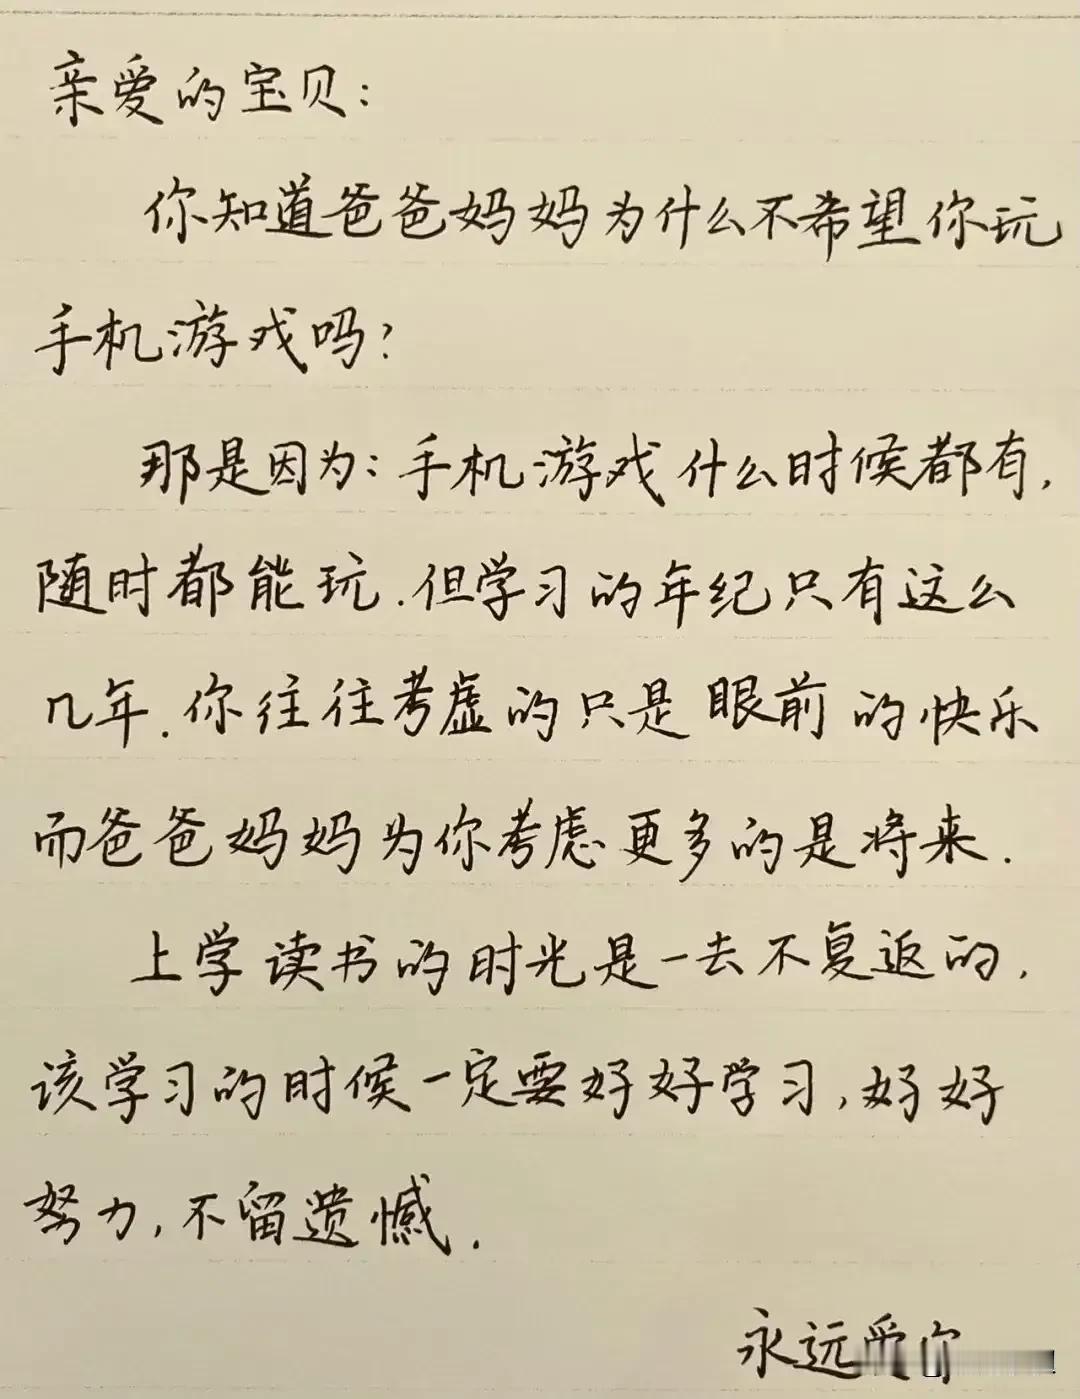 亲爱的宝贝:
你知道爸爸妈妈为什么不希望你玩
手机游戏吗?
那是因为:手机游戏什么时候都有,
随时都能玩.但学习的年纪只有这么
几年.你往往考虚的只是眼前的快乐
而爸爸妈妈为你考虑更多的是将来.
上学读书的时光是一去不复返的,
该学习的时候一定要好好学习,好好
努力,不留遗憾.
永远爱你